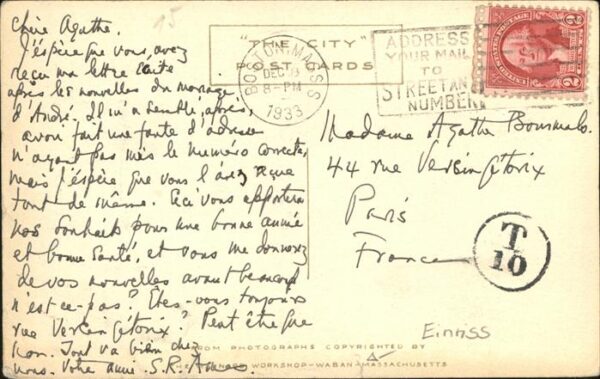 15
Chère Agathe.
J'éspère que vous avez
reçu ma lettre écrite
après les nouvelles du mariage
d'André. Il m'a semblé, après,
avoir fait une faute d'adresse
n'ayant pas mis le numéro correcte,
mais j'éspère que vous l'avez reçue
tout de même. Ceci vous apportera
nos souhaits pour une bonne année
et bonne santé, et vous me donnerez
de vos nouvelles avant beaucoup
n'est-ce-pas? Êtes-vous toujours
rue Vercingétorix? Peut être que
non. Tout va bien chez
nous. Votre amie. S.R.
"THE CITY"
POST CARDS
BOSTON, MASS.
DEC
8-PM
1933
ADDRESS
YOUR MAIL
TO
STREET AND
NUMBER
UNITED STATES POSTAGE
2
Madame Agathe
44 rue Vercingétorix
Paris
France
T
10
Einriss
FROM PHOTOGRAPHS COPYRIGHTED BY
WORKSHOP-WABAN-MASSACHUSETTS